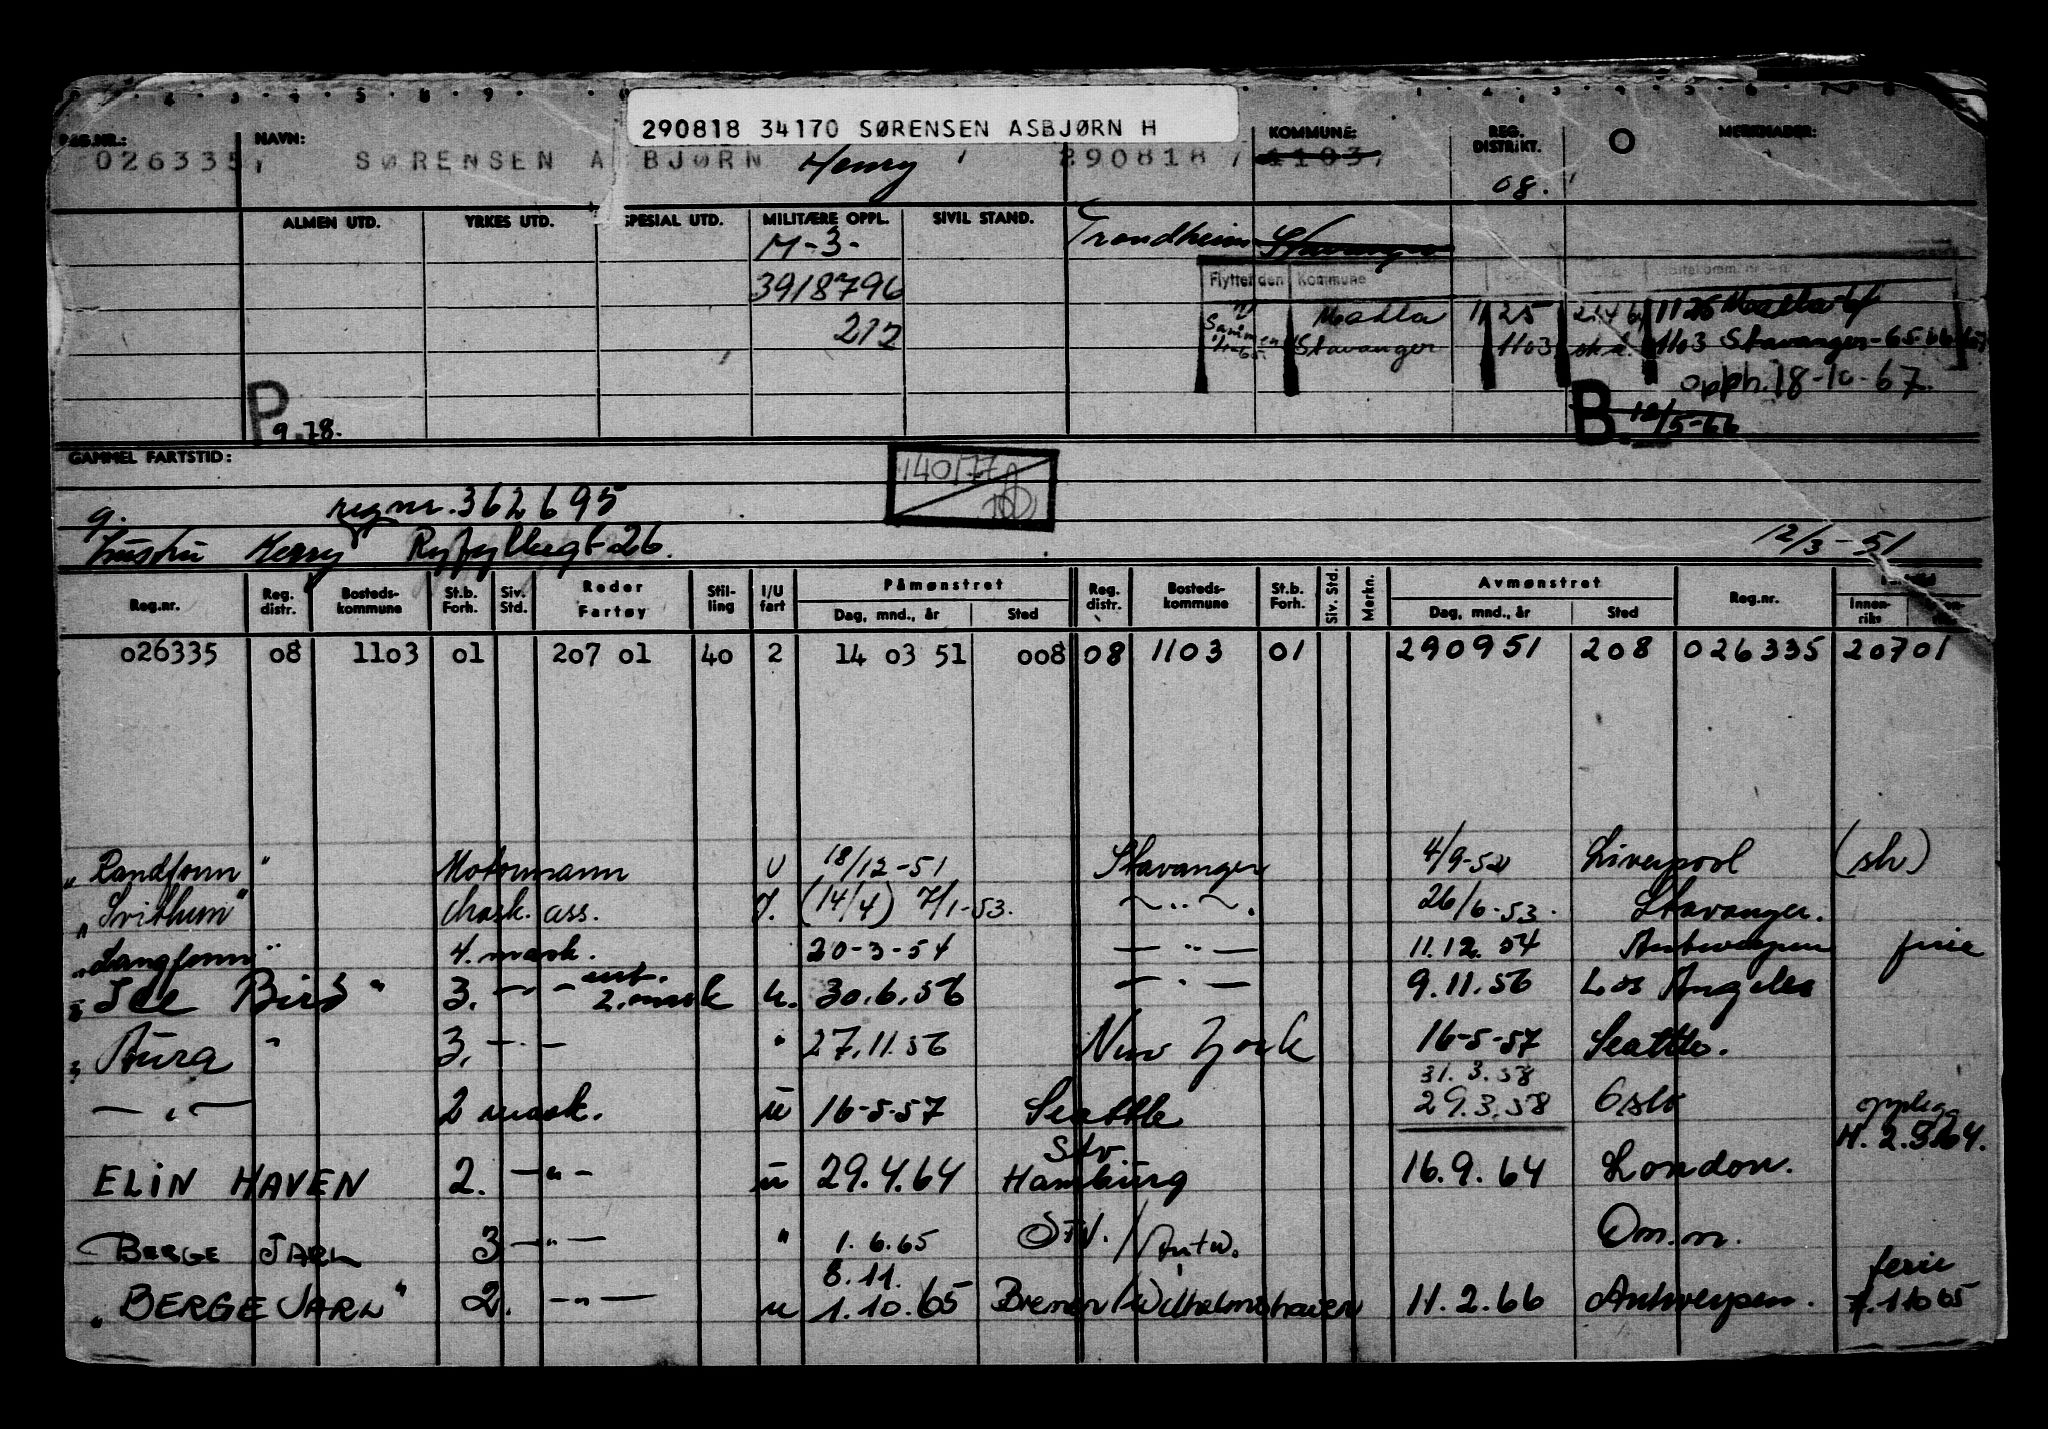 290818 34170 SØRENSEN ASBJØRN H
REG.NR.: NAVN: KOMMUNE: REG. DISTRIKT. O MERKNADER:
026335, SØRENSEN ASBJØRN Henry 290818, 1103, 08.
ALMEN UTD. YRKES UTD. SPESIAL UTD. MILITÆRE OPPL. SIVIL STAND. Trondheim Stavanger
M-3-
3918796
212
Flyttet den Kommune
Madla 1125 1125 Madla
Stavanger 1103 1103 Stavanger-65-66-67
opph. 18-10-67.
P 9.78.
B. 12/5-66
GAMMEL FARTSTID:
140/77
g. reg nr. 362695
Hustru Henry Ryfylkegt 26. 12/3-51
Reg.nr. Reg. distr. Bosteds-kommune St.b. Forh. Siv. Std. Reder Fartøy Stil-ling I/U fart Påmønstret Dag, mnd., år Sted Reg. distr. Bosteds-kommune St.b. Forh. Siv. Std. Merkn. Avmønstret Dag, mnd., år Sted Reg.nr. Innen-riks
026335 08 1103 01 207 01 40 2 14 03 51 008 08 1103 01 290951 208 026335 20701
"Randfonn" Motormann U 18/12-51 Stavanger 4/9-52 Liverpool (sh)
"Svithun" Mask. ass. I. (14/4) 7/1-53. — " — . 26/6-53. Stavanger.
"Langfonn" 4. mask. 20-3-54 — " — 11.12.54 Antwerpen ferie
"Ice Bird" 3. — " — 2. mask u. 30.6.56 — " — 9.11.56 Los Angeles
"Aura" 3. — " — " 27.11.56 New York 16-5-57 Seattle.
31.3.58
— " — 2 mask. u 16-5-57 Seattle 29.3.58 Oslo opplegg
H. 2.5.64.
Stv
ELIN HAVEN 2. — " — u 29.4.64 Hamburg 16.9.64 London.
BERGE JARL 3 — " — " 1.6.65 Stv. / Antw. Om.m.
8.11. ferie
"BERGE JARL" 2. — " — u 1.10.65 Bremen/Wilhelmshaven 11.2.66 Antwerpen. f. 11065